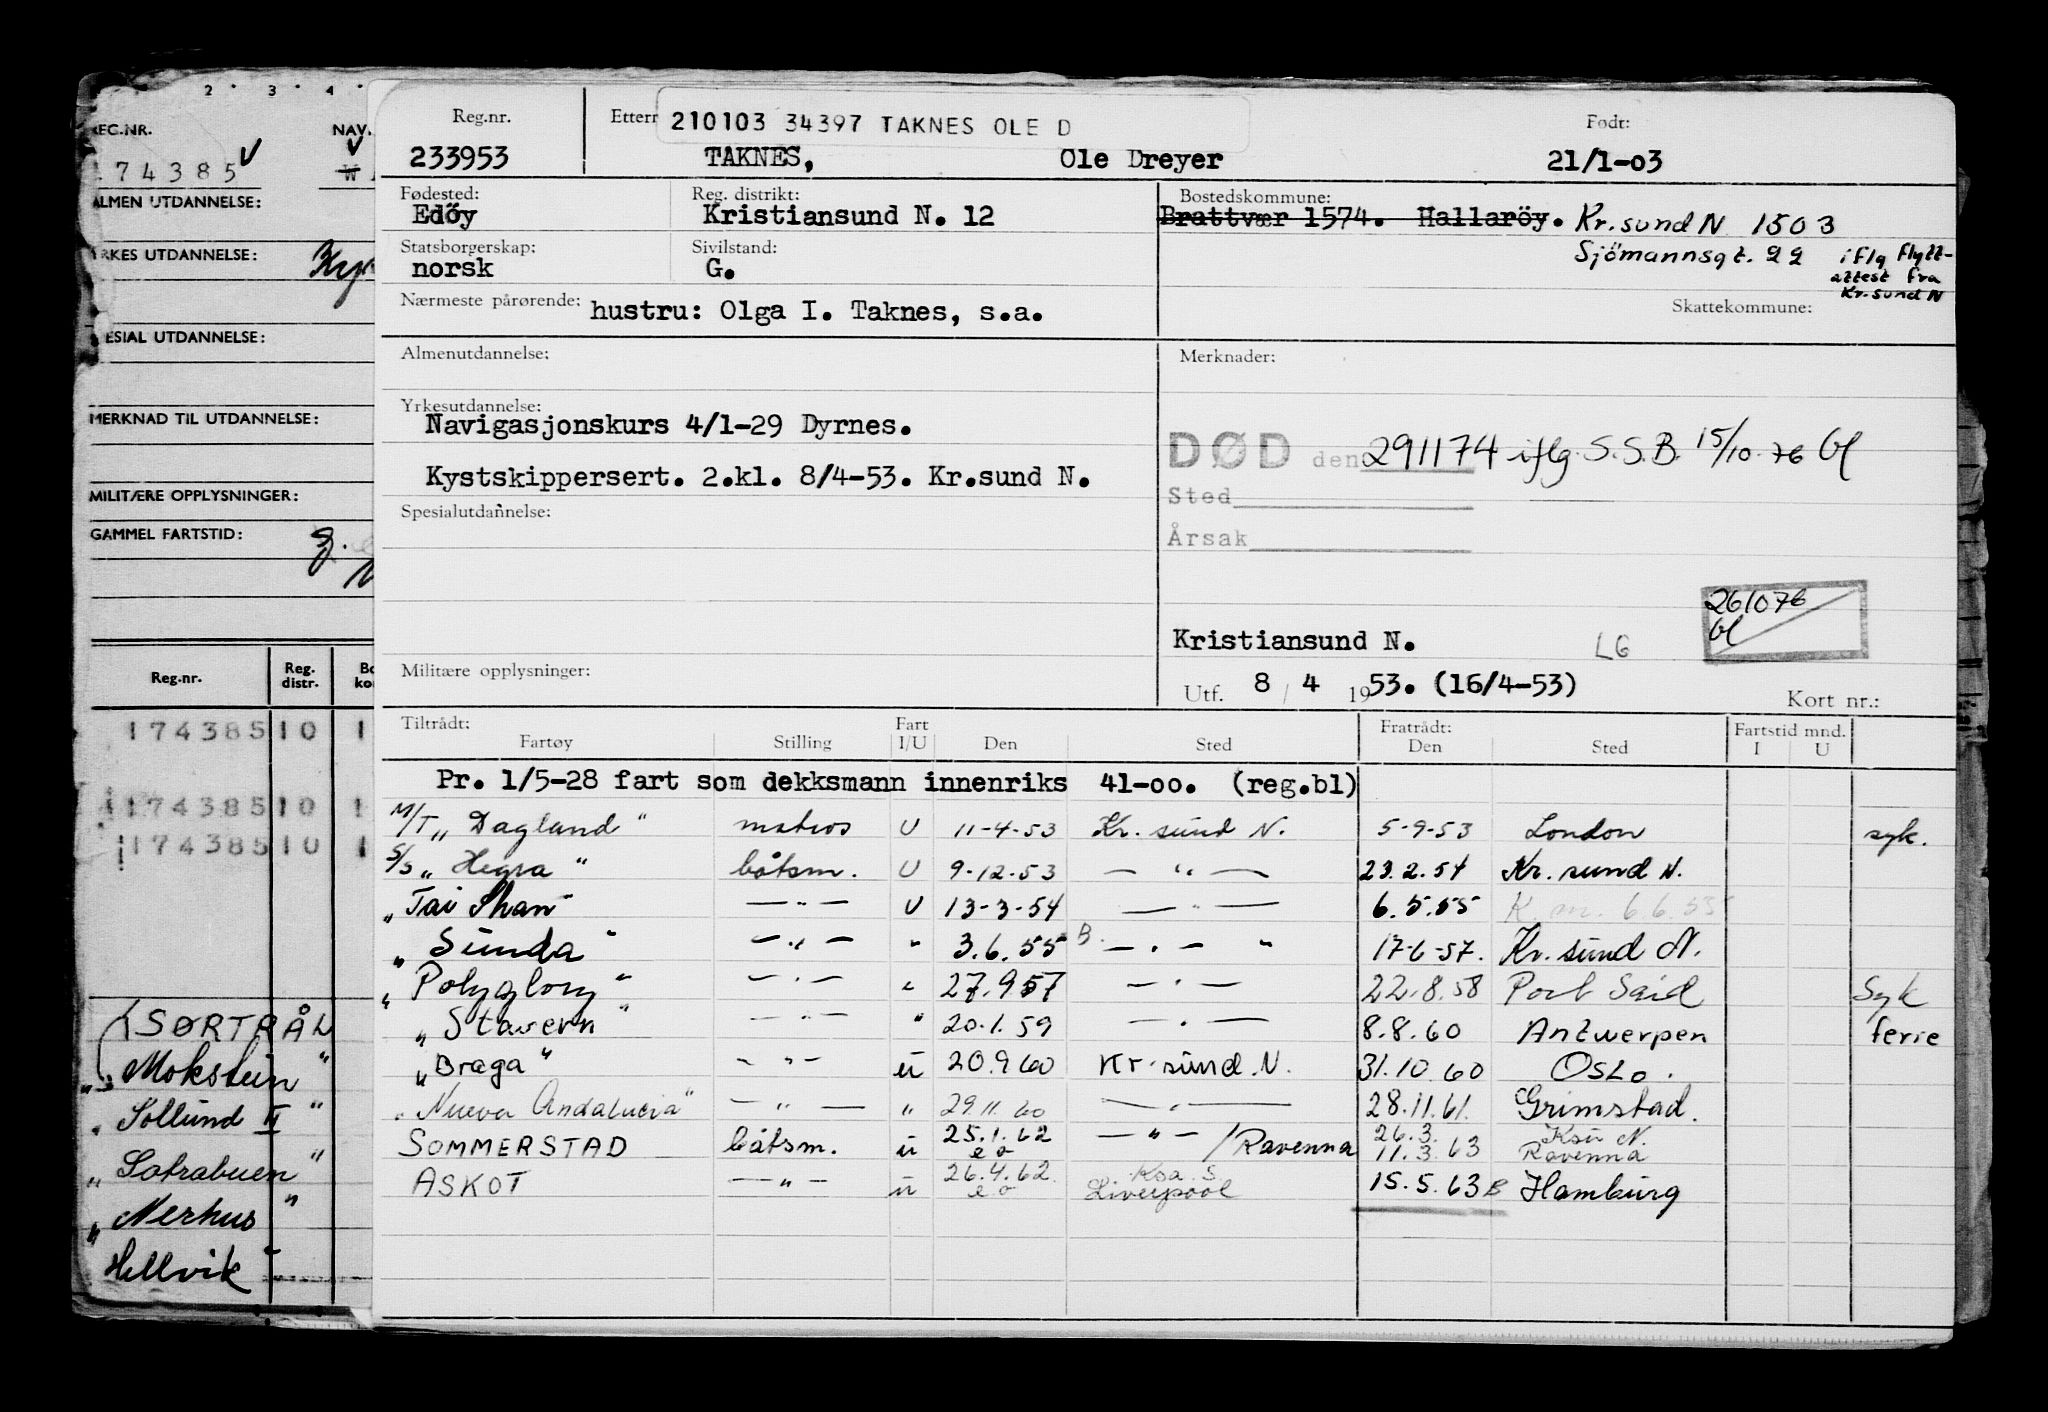 2 · 3 · 4 ·
REG.NR.
NAV.
174385 V
ALMEN UTDANNELSE:
YRKES UTDANNELSE:
SPESIAL UTDANNELSE:
MERKNAD TIL UTDANNELSE:
MILITÆRE OPPLYSNINGER:
GAMMEL FARTSTID:
Reg.nr.
Reg. distr.
174385 10
174385 10
174385 10
SØRTRÅL
„ Mokstein "
„ Sollund II "
„ Sotrabuen "
„ Nerhus "
Hellvik
Reg.nr.
233953
Ettern
210103 34397 TAKNES OLE D
TAKNES, Ole Dreyer
Født:
21/1-03
Fødested:
Edöy
Reg. distrikt:
Kristiansund N. 12
Bostedskommune:
Brattvær 1574. Hallaröy. Kr.sund N 1503
Sjömannsgt. 22 iflg flytt-
attest fra
Kr.sund N
Statsborgerskap:
norsk
Sivilstand:
G.
Nærmeste pårørende: hustru: Olga I. Taknes, s.a.
Skattekommune:
Almenutdannelse:
Merknader:
Yrkesutdannelse:
Navigasjonskurs 4/1-29 Dyrnes.
Kystskippersert. 2.kl. 8/4-53. Kr.sund N.
DØD den 291174 iflg. S.S.B. 15/10-76
Sted
Årsak
Spesialutdannelse:
261076
Kristiansund N. LG
Militære opplysninger:
Utf. 8 / 4 1953. (16/4-53)
Kort nr.:
Tiltrådt: Fart Fratrådt: Fartstid mnd.
Fartøy Stilling I/U Den Sted Den Sted I U
Pr. 1/5-28 fart som dekksmann innenriks 41-oo. (reg.bl)
M/T „ Dagland " matros U 11-4-53 Kr. sund N. 5-9-53 London syk.
S/S „ Hegra " båtsm. U 9-12-53 — " — 23.2.54 Kr. sund N.
„ Tai Shan " — " — U 13-3-54 — " — 6.5.55 K. m. 6.6.55
„ Sunda " — " — " 3.6.55 B. — " — " 17-6-57. Kr. sund N.
„ Polyglory " — " — " 27.9.57 — " — 22.8.58 Port Said Syk
„ Stavern " — " — " 20.1.59 — " — 8.8.60 Antwerpen ferie
„ Braga " — " — u 20.9.60 Kr. sund. N. 31.10.60 Oslo.
„ Nueva Andalucia " — " — " 29.11.60 — " — 28.11.61. Grimstad.
SOMMERSTAD båtsm. u 25.1.62 eo — " — / Ravenna 26.3. Ksu N. 11.3.63 Ravenna
ASKOT — " — u 26.4.62. eo Ksa. S. Liverpool 15.5.63 B Hamburg